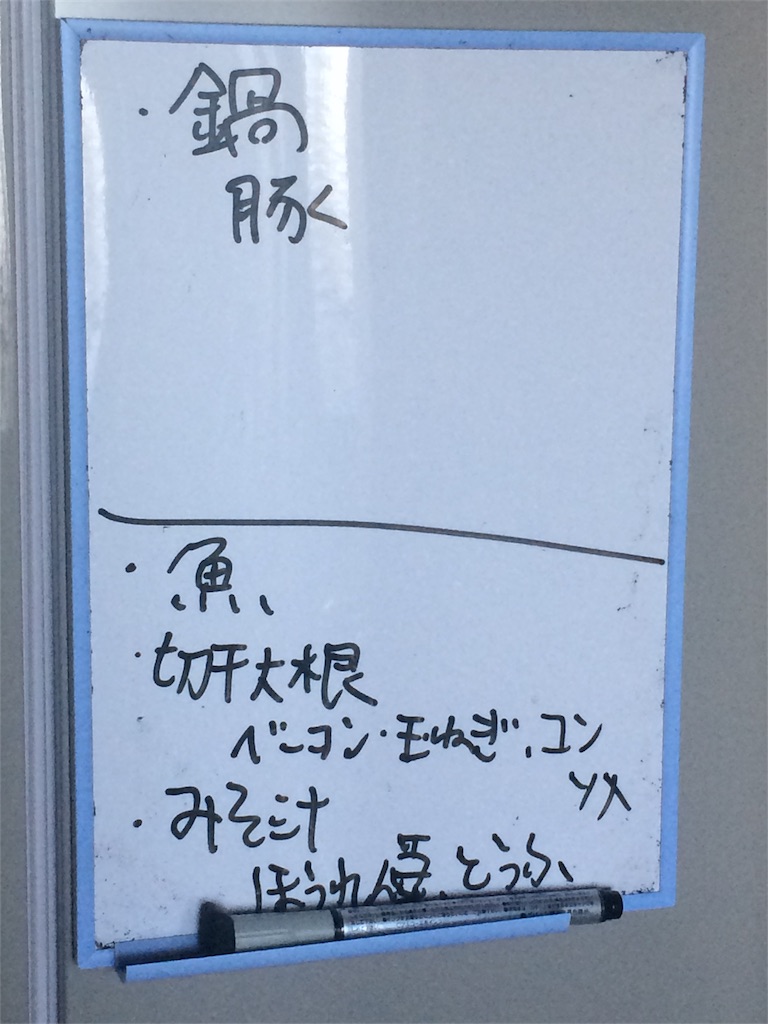 ・鍋
豚く
・魚
・切干大根
ベーコン・玉ねぎ、コン
ソメ
・みそ汁
ほうれん草、とうふ